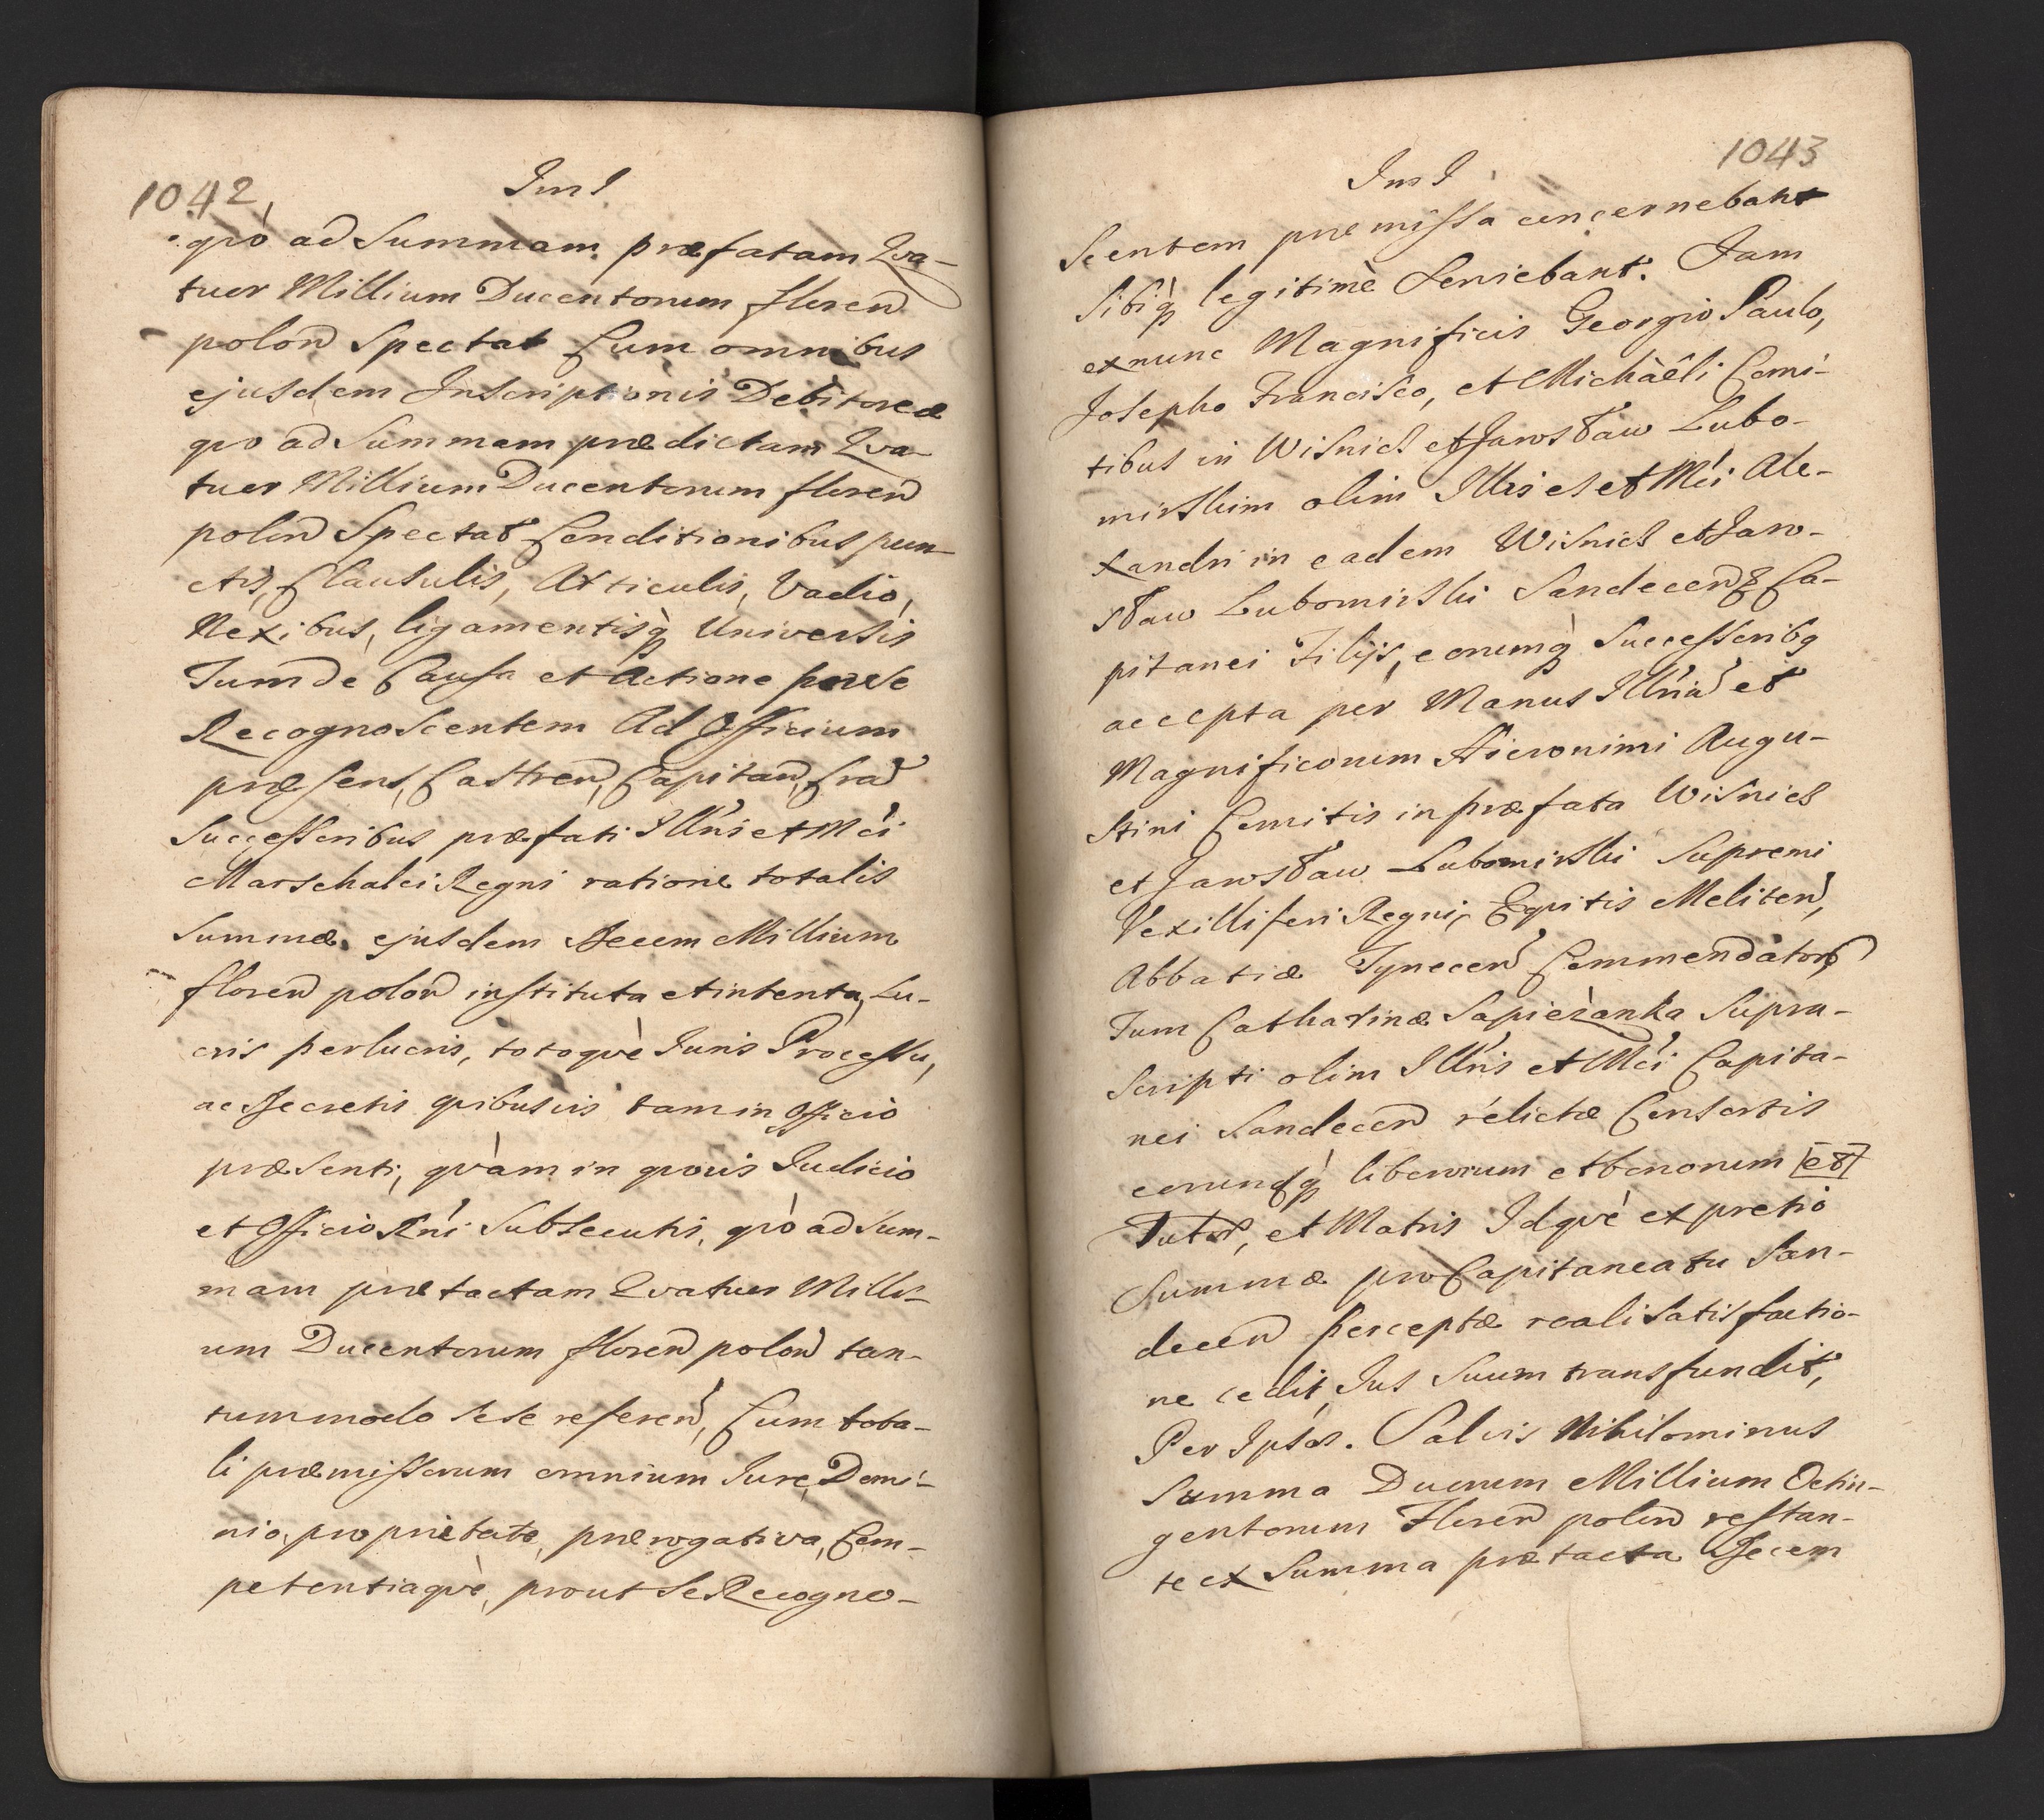 1042,
Ins I
qvò ad Summam præfatam Qva-
tuor Millium Ducentorum floren
polon Spectat Cum omnibus
ejusdem Inscriptionis Debitoreæ
qvo ad Summam prædictam Qva-
tuor Millium Ducentorum floren
polon Spectat Conditionibus pun-
ctis, Clausulis, Articulis, Vadio,
Nexibus, ligamentisq̀ Universis
Tum de Causa et Actione per se
Recognoscentem Ad Officium
præsens, Castren, Capitan, Cra
Successoribus præfati Illris et Mci
Marschalci Regni ratione totalis
Summæ ejusdem Decem Millium
floren polon instituta et intenta, Lu-
cris perlucris, totoqvè Juris Processu,
ac Decretis qvibusvis tam in Officio
præsenti, qvàm in qvovis Judicio
et Officio Rni Subsecutis, qvò ad Sum-
mam prætactam Qvatuor Milli-
um Ducentorum floren polon tan-
tummodo sese referen, Cum tota-
li præmissorum omnium Jure, Domi-
nio, proprietate, prærogativa, Com-
petentiaqvè, prout Se Recogno-
1043
Ins I
Scentem præmissa concernebant
Sibiq̀ legitimè Serviebant. Jam
exnunc Magnificis Georgio Paulo,
Josepho Francisco, et Michàêli Comi-
tibus in Wisnicz et Jarosław Lubo-
mirskim olim Illris et Mci Ale-
xandri in eadem Wisnicz et Jaro-
sław Lubomirski Sandecen Ca-
pitanei Filijs, eorumq̀ Successoribq
accepta per Manus Illriũ et
Magnificorum Hieronimi Augu-
stini Comitis in præfata Wisnicz
et Jarosław Lubomirski Supremi
Vexilliferi Regni, Eqvitis Meliten,
Abbatiæ Tynecen Commendatoris
Tum Catharinæ Sapieżanka Supra-
scripti olim Illris et Mci Capita-
nei Sandecen relictæ Consortis
eorundq̀ liberorum et bonorum et
Tutor, et Matris Idqvè ex pretio
Summæ pro Capitaneatu San-
decen perceptæ reali Satisfactio-
ne cedit, Jus Suum transfundit,
Per Ipsos. Salvis Nihilominus
Summa Duorum Millium Octin-
gentorum Floren polon restan-
te ex Summa prætacta Decem